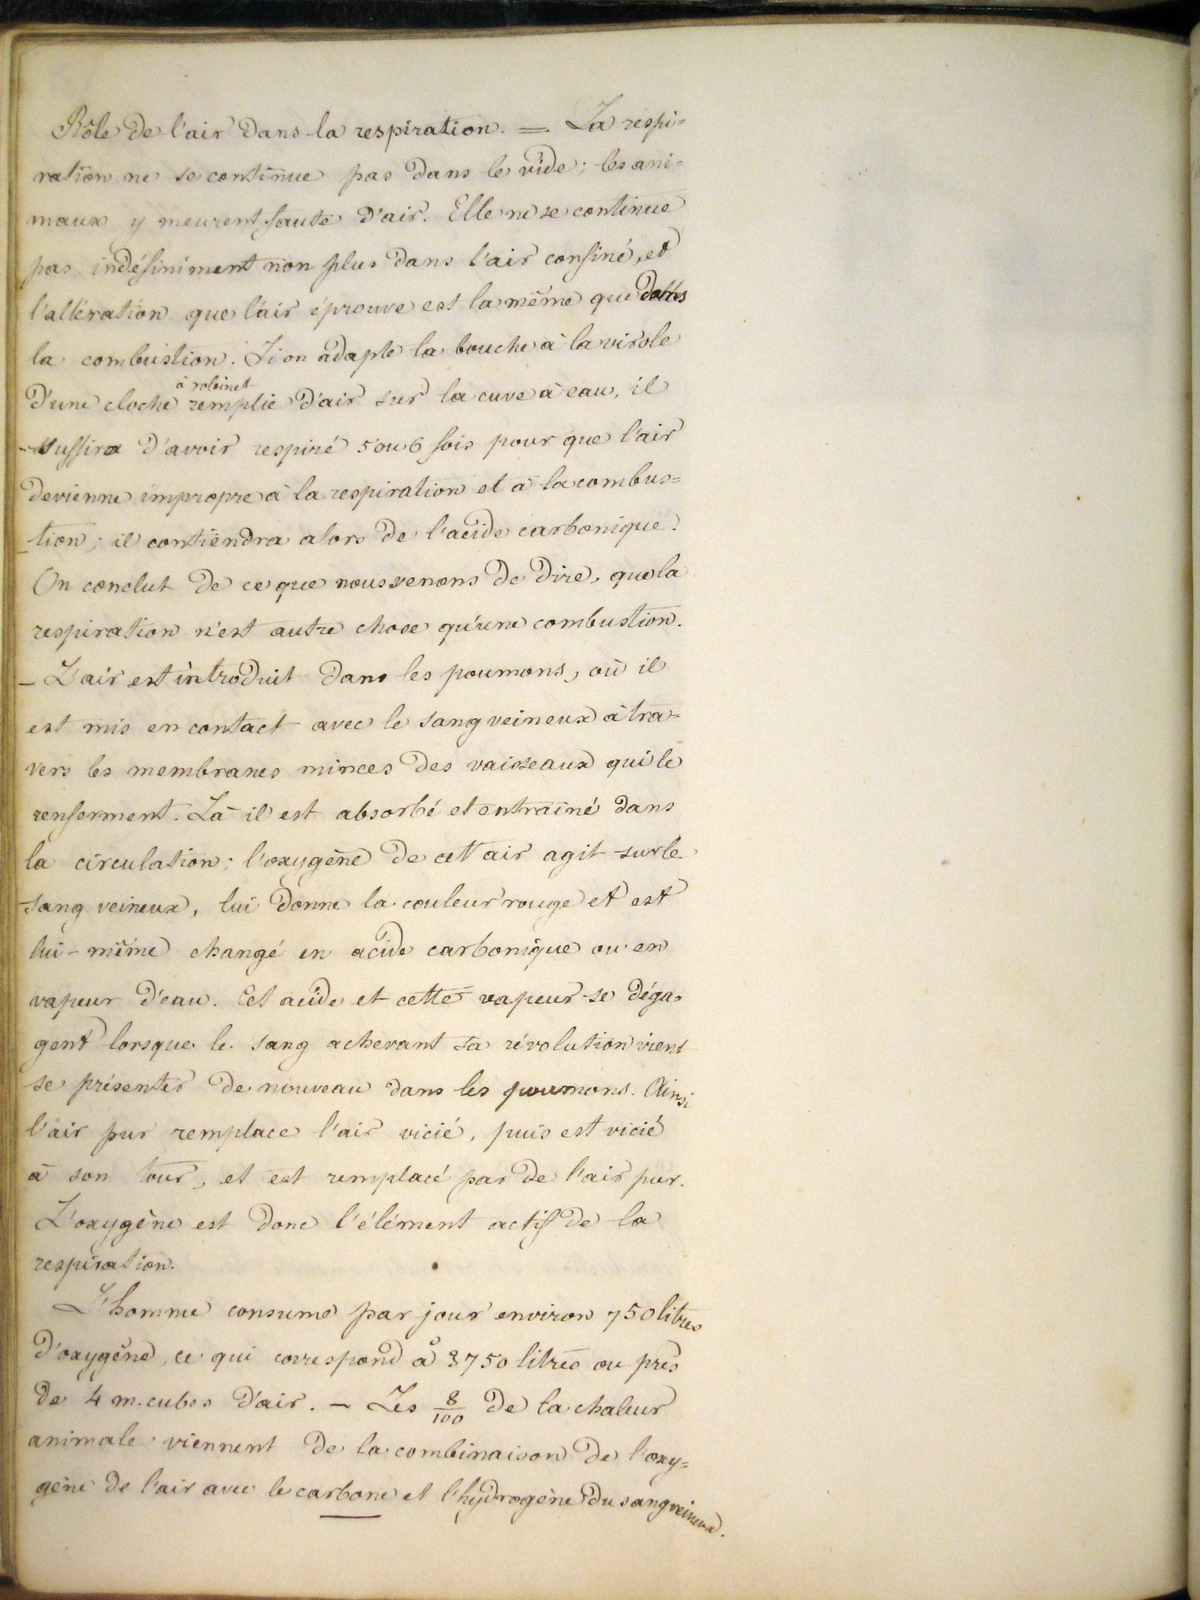 Rôle de l'air dans la respiration. = La respi=
ration ne se continue pas dans le vide; les ani=
maux y meurent faute d'air. Elle ne se continue
pas indéfiniment non plus dans l'air confiné, et
l'altération que l'air éprouve est la même que dans
la combustion. Si on adapte la bouche à la virole
à robinet
d'une cloche remplie d'air sur la cuve à eau, il
suffira d'avoir respiré 5 ou 6 fois pour que l'air
devienne impropre à la respiration et à la combus=
tion; il contiendra alors de l'acide carbonique.
On conclut de ce que nous venons de dire, que la
respiration n'est autre chose qu'une combustion.
— L'air est introduit dans les poumons, où il
est mis en contact avec le sang veineux à tra=
vers les membranes minces des vaisseaux qui le
renferment. Là il est absorbé et entraîné dans
la circulation; l'oxygène de cet air agit sur le
sang veineux, lui donne la couleur rouge et est
lui-même changé en acide carbonique ou en
vapeur d'eau. Cet acide et cette vapeur se déga=
gent lorsque le sang achevant sa révolution vient
se présenter de nouveau dans les poumons. Ainsi
l'air pur remplace l'air vicié, puis est vicié
à son tour, et est remplacé par de l'air pur.
L'oxygène est donc l'élément actif de la
respiration.
L'homme consume par jour environ 750 litres
d'oxygène, ce qui correspond à 3750 litres ou près
de 4 m. cubes d'air. — Les 8/100 de la chaleur
animale viennent de la combinaison de l'oxy=
gène de l'air avec le carbone et l'hydrogène du sang veineux.